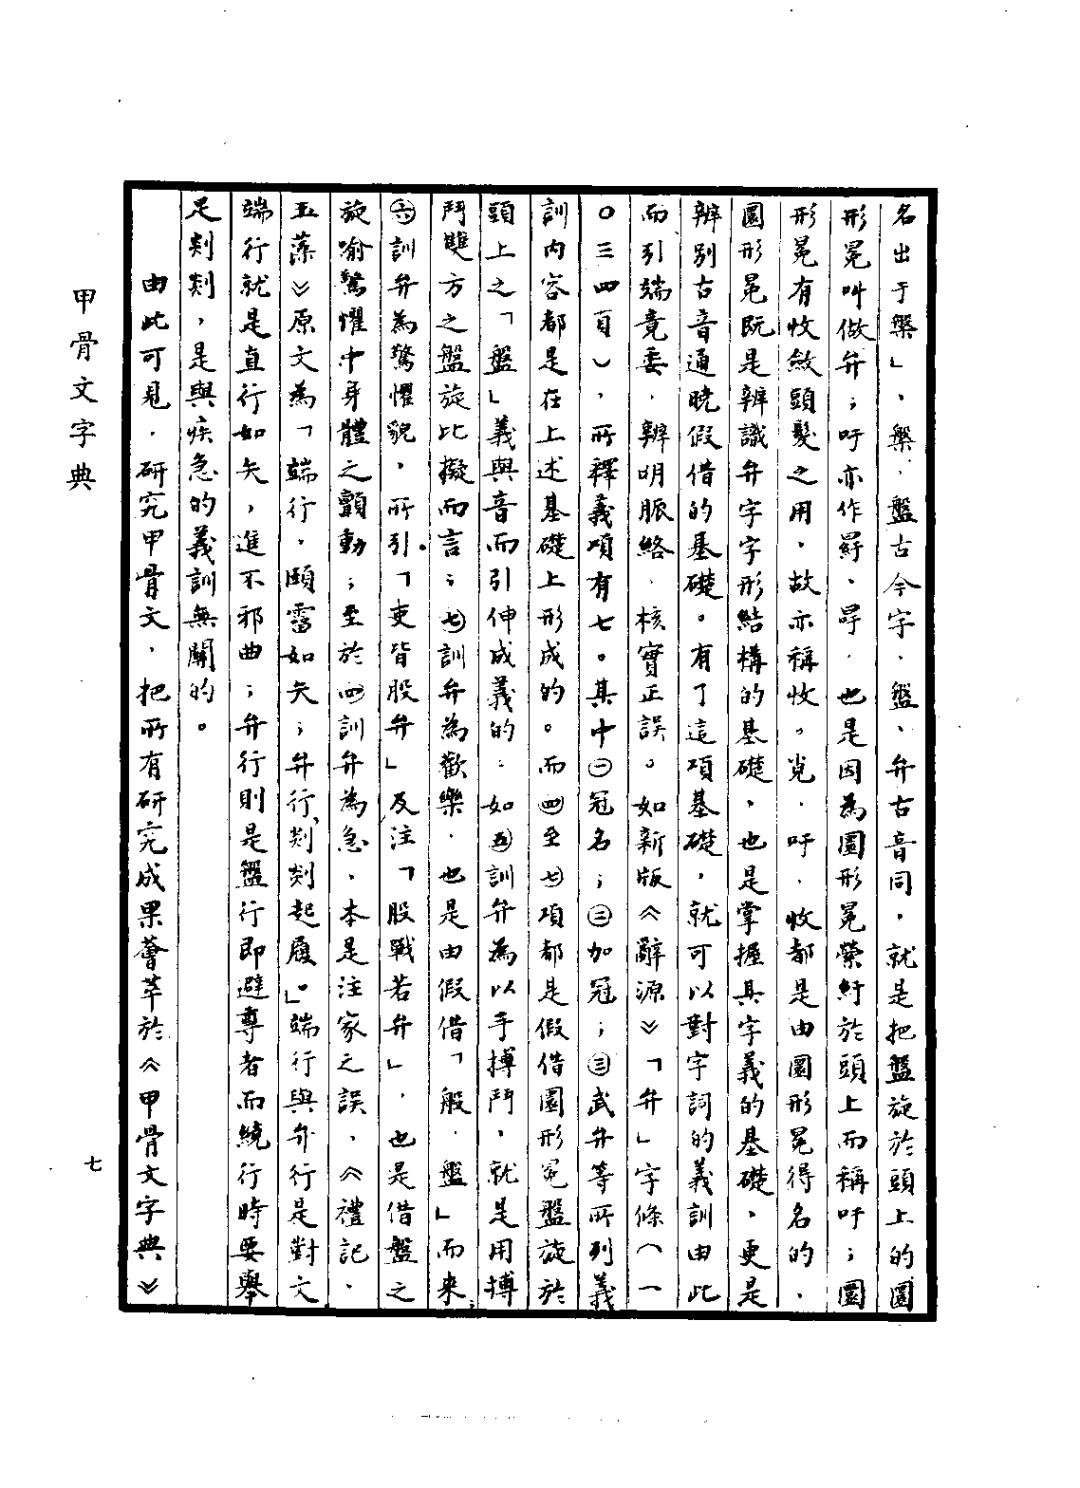 名出于槃」，槃、盤古今字，盤、弁古音同，就是把盤旋於頭上的圜
形冕叫做弁；吁亦作冔、冔，也是因為圜形冕縈紆於頭上而稱吁；圜
形冕有收斂頭髮之用，故亦稱收。覍、吁、收都是由圜形冕得名的，
圜形冕既是辨識弁字字形結構的基礎，也是掌握其字義的基礎，更是
辨別古音通曉假借的基礎。有了這項基礎，就可以對字詞的義訓由此
而引端竟委，辨明脈絡，核實正誤。如新版《辭源》「弁」字條（一
〇三四頁），所釋義項有七。其中㊀冠名；㊁加冠；㊂武弁等所列義
訓内容都是在上述基礎上形成的。而㊃至㊆項都是假借圜形冕盤旋於
頭上之「盤」義與音而引伸成義的：如㊄訓弁為以手搏鬥，就是用搏
鬥雙方之盤旋比擬而言；㊆訓弁為歡樂，也是由假借「般、盤」而来；
㊅訓弁為驚懼貌，所引「吏皆股弁」及注「股戰若弁」，也是借盤之
旋喻驚懼中身體之顫動；至於㊃訓弁為急，本是注家之誤，《禮記·
五藻》原文為「端行，頤霤如矢；弁行，剡剡起履」。端行與弁行是對文
端行就是直行如矢，進不邪曲；弁行則是盤行即避尊者而繞行時要舉
足剡剡，是與疾急的義訓無關的。
由此可見，研究甲骨文，把所有研究成果薈萃於《甲骨文字典》
甲骨文字典
七